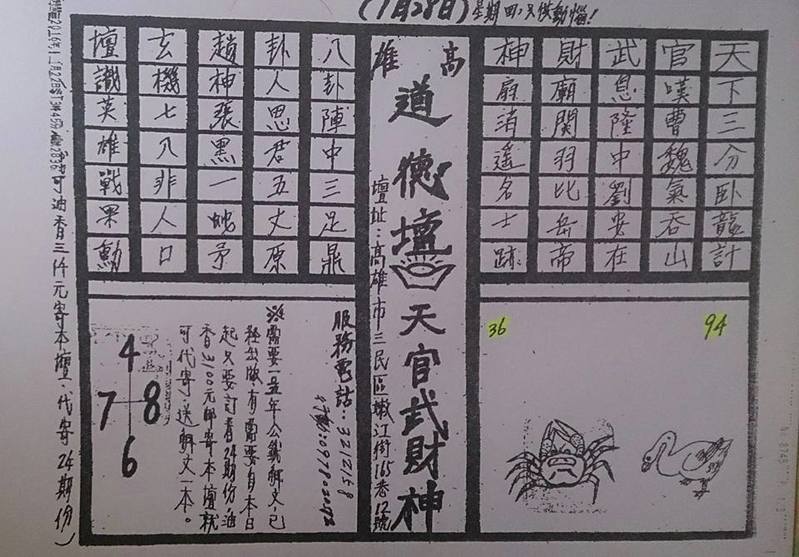 (1月28日)星期四,只供動腦!
天下三分卧龍計
官嘆曹魏氣吞山
武息隆中劉安在
財廟関羽比岳帝
神扇消遥名士跡
94
36
高雄
道德壇 天官武財神
壇址:高雄市三民區嫩江街165巷12號
八卦陣中三足鼎
卦人思君五丈原
趙神張黑一蛇矛
玄機七八非人口
壇識英雄戰果勳
服務電話:3212158
※需要一五年公籤解文,已
經出版有需要有本日
起只要訂看24期份油
香3100元郵寄本壇就
可代寄送解文一本。
4
7 8
6
可油香三仟元寄本壇.代寄24期份)